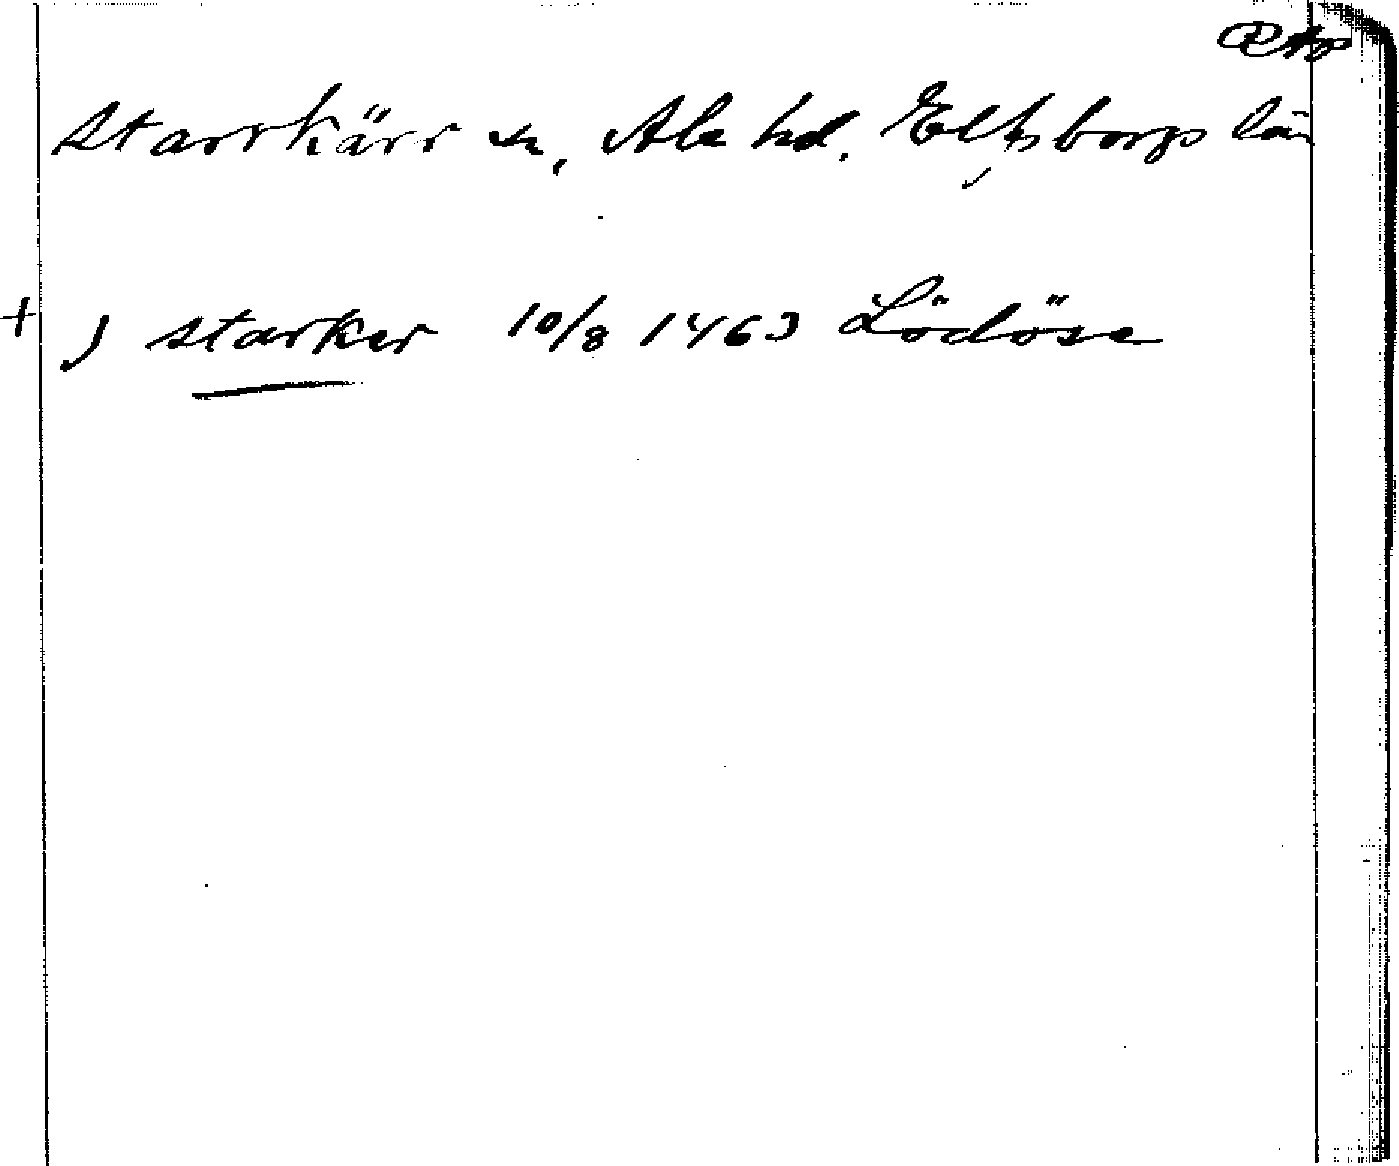 Rep
Starrkärr sn, Ale hd. Elfsborgs län
+ J starker 10/8 1463 Lödöse